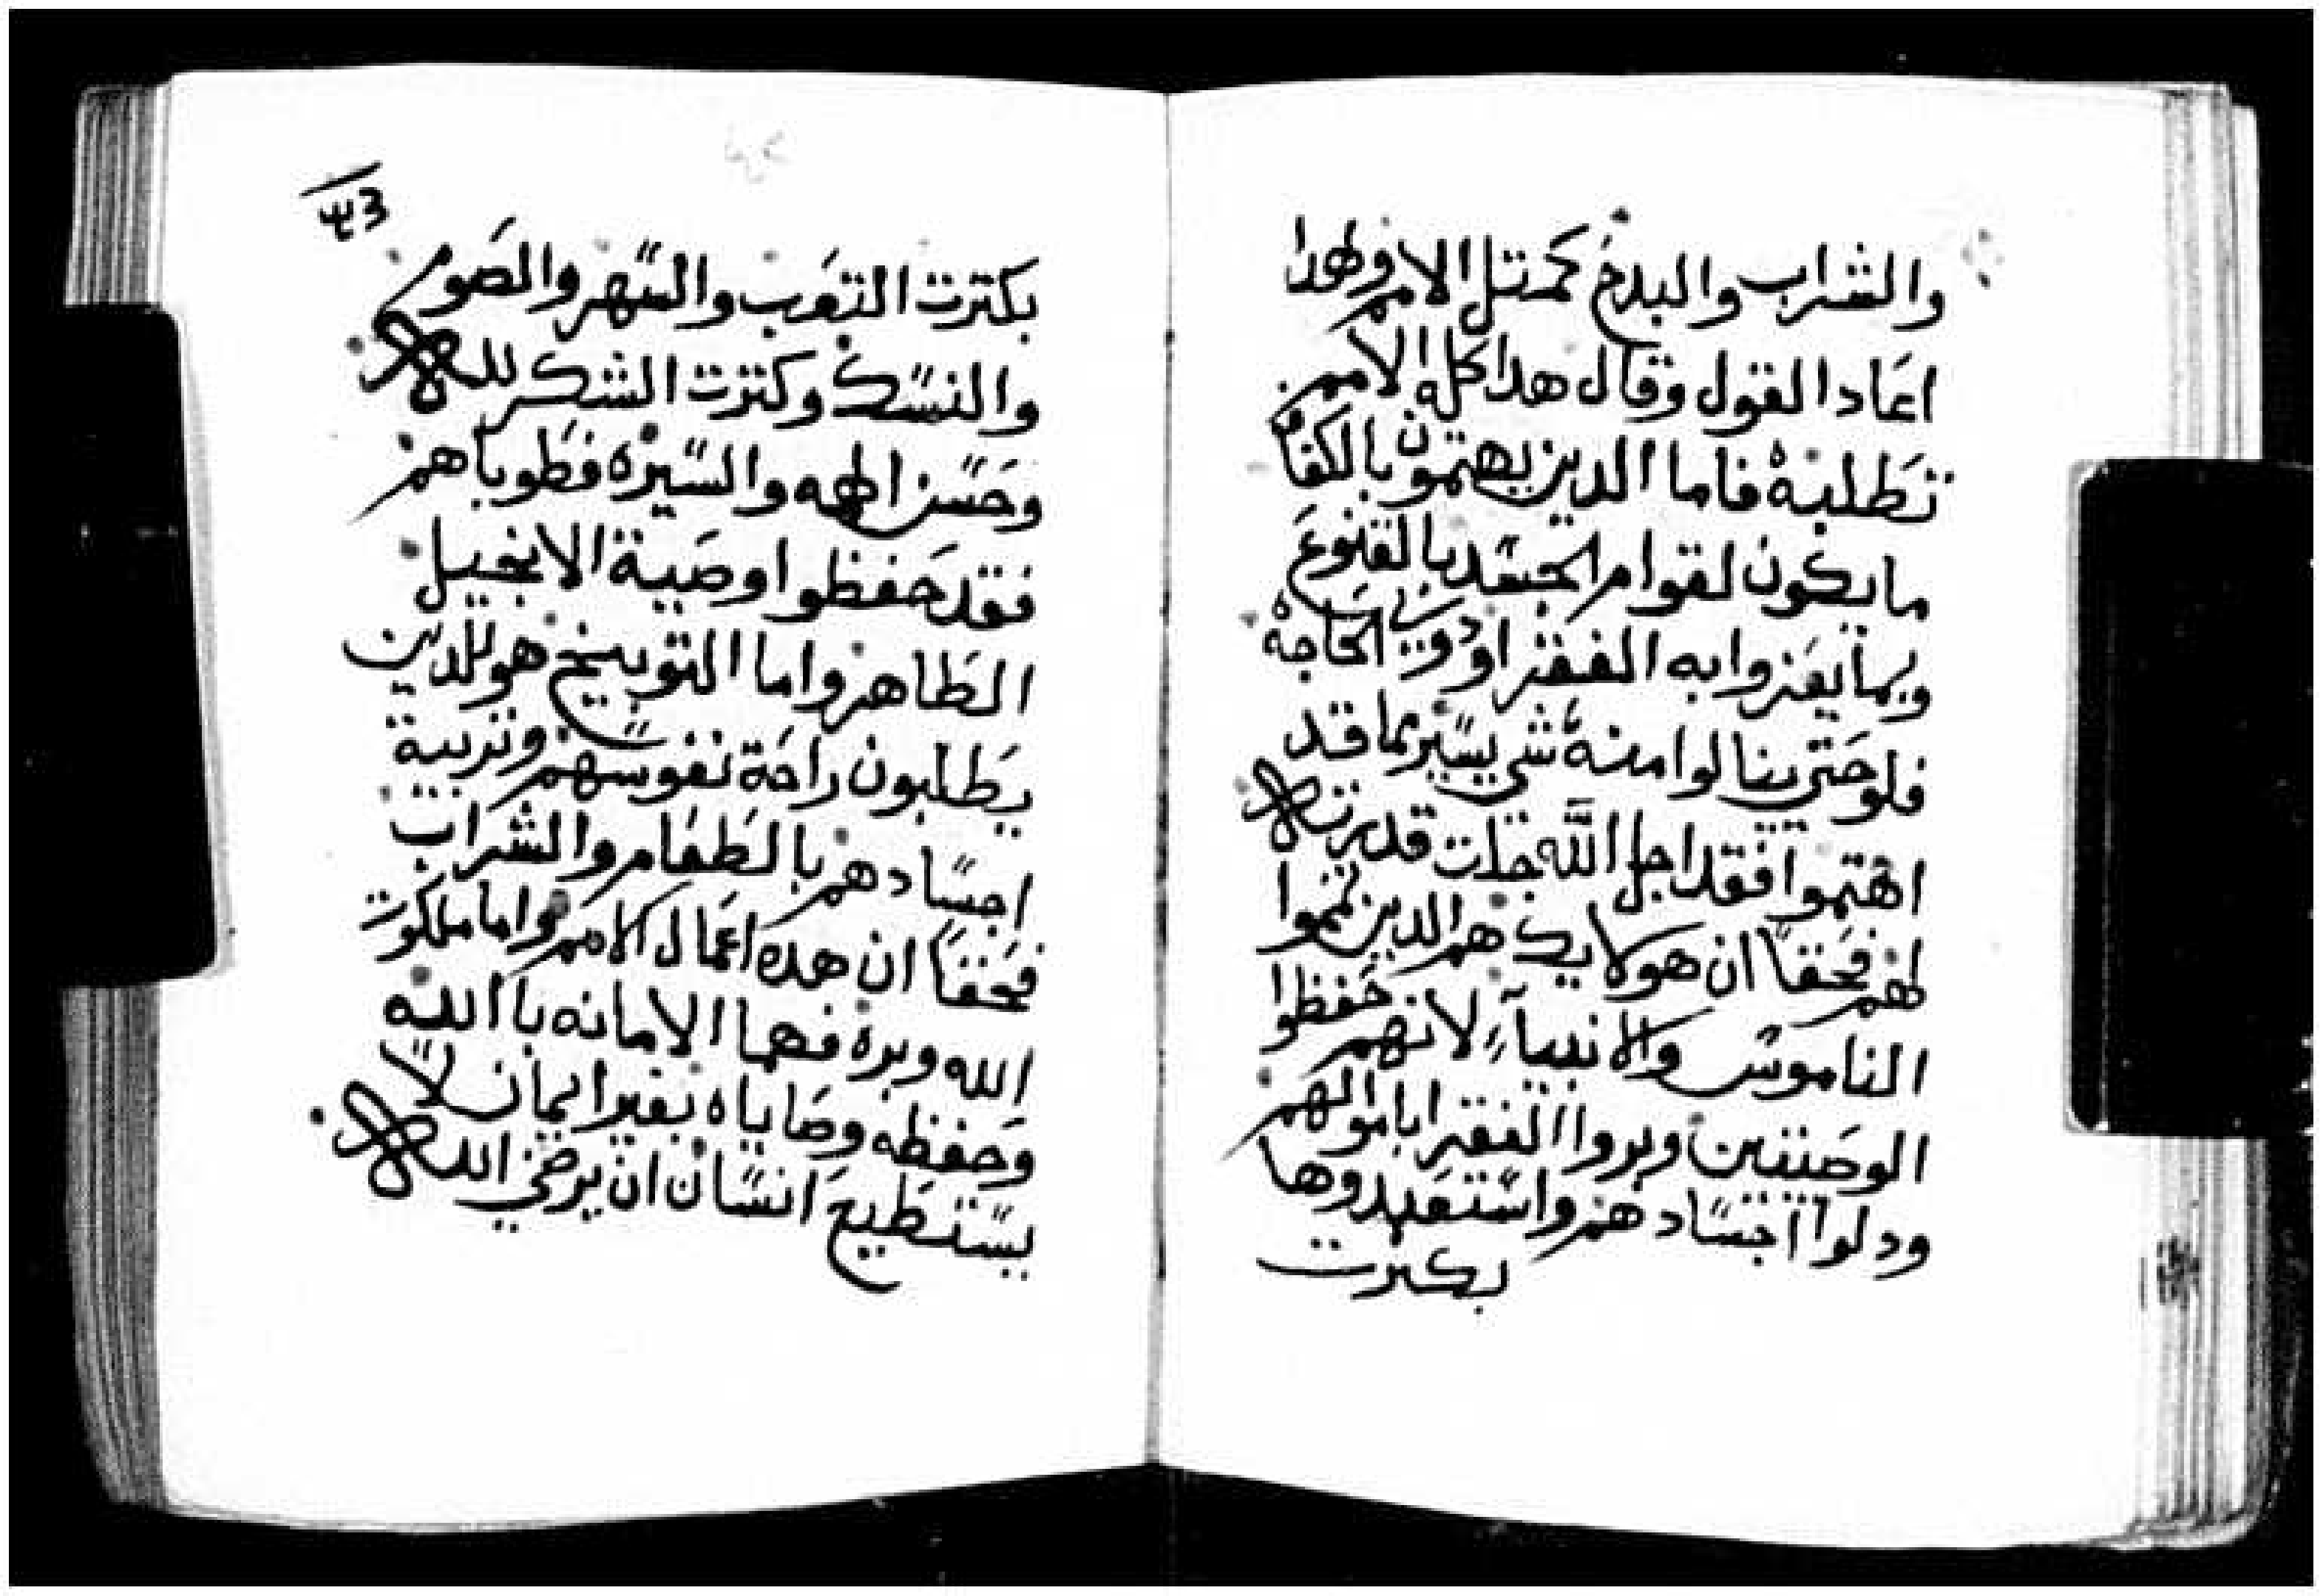 والشراب والبدخ كمتل الامم ولهدا
اعاد القول وقال هدا كله الامم
تطلبه فاما الدين يهتمون بالكفاف
ما يكون لقوام الجسد بالقنوع
وبما يعزوا به الفقر او دوي الحاجه
فلو حتي ينالوا منه شي يسير مما قد
اهتموا فقد اجل الله جلت قدرته
لهم فحقاً ان هولايك هم الدين تمموا
الناموس والانبياء لانهم حفظوا
الوصيتين وبروا الفقرا باموالهم
ودلوا اجسادهم واستعبدوها
بكترت
بكترت التعب والسهر والصوم
والنسك وكترت الشكر لله
وحسن الهمه والسيره فطوباهم
فقد حفظوا وصية الانجيل
الطاهر واما التوبيخ هو للدين
يطلبون راحة نفوسهم وتربية
اجسادهم بالطعام والشراب
فحقا ان هده اعمال الامم واما ملكوت
الله وبره فهما الامانه باالله
وحفظه وصاياه بغير ايمان لا
يستطيع انسان ان يرضي الله